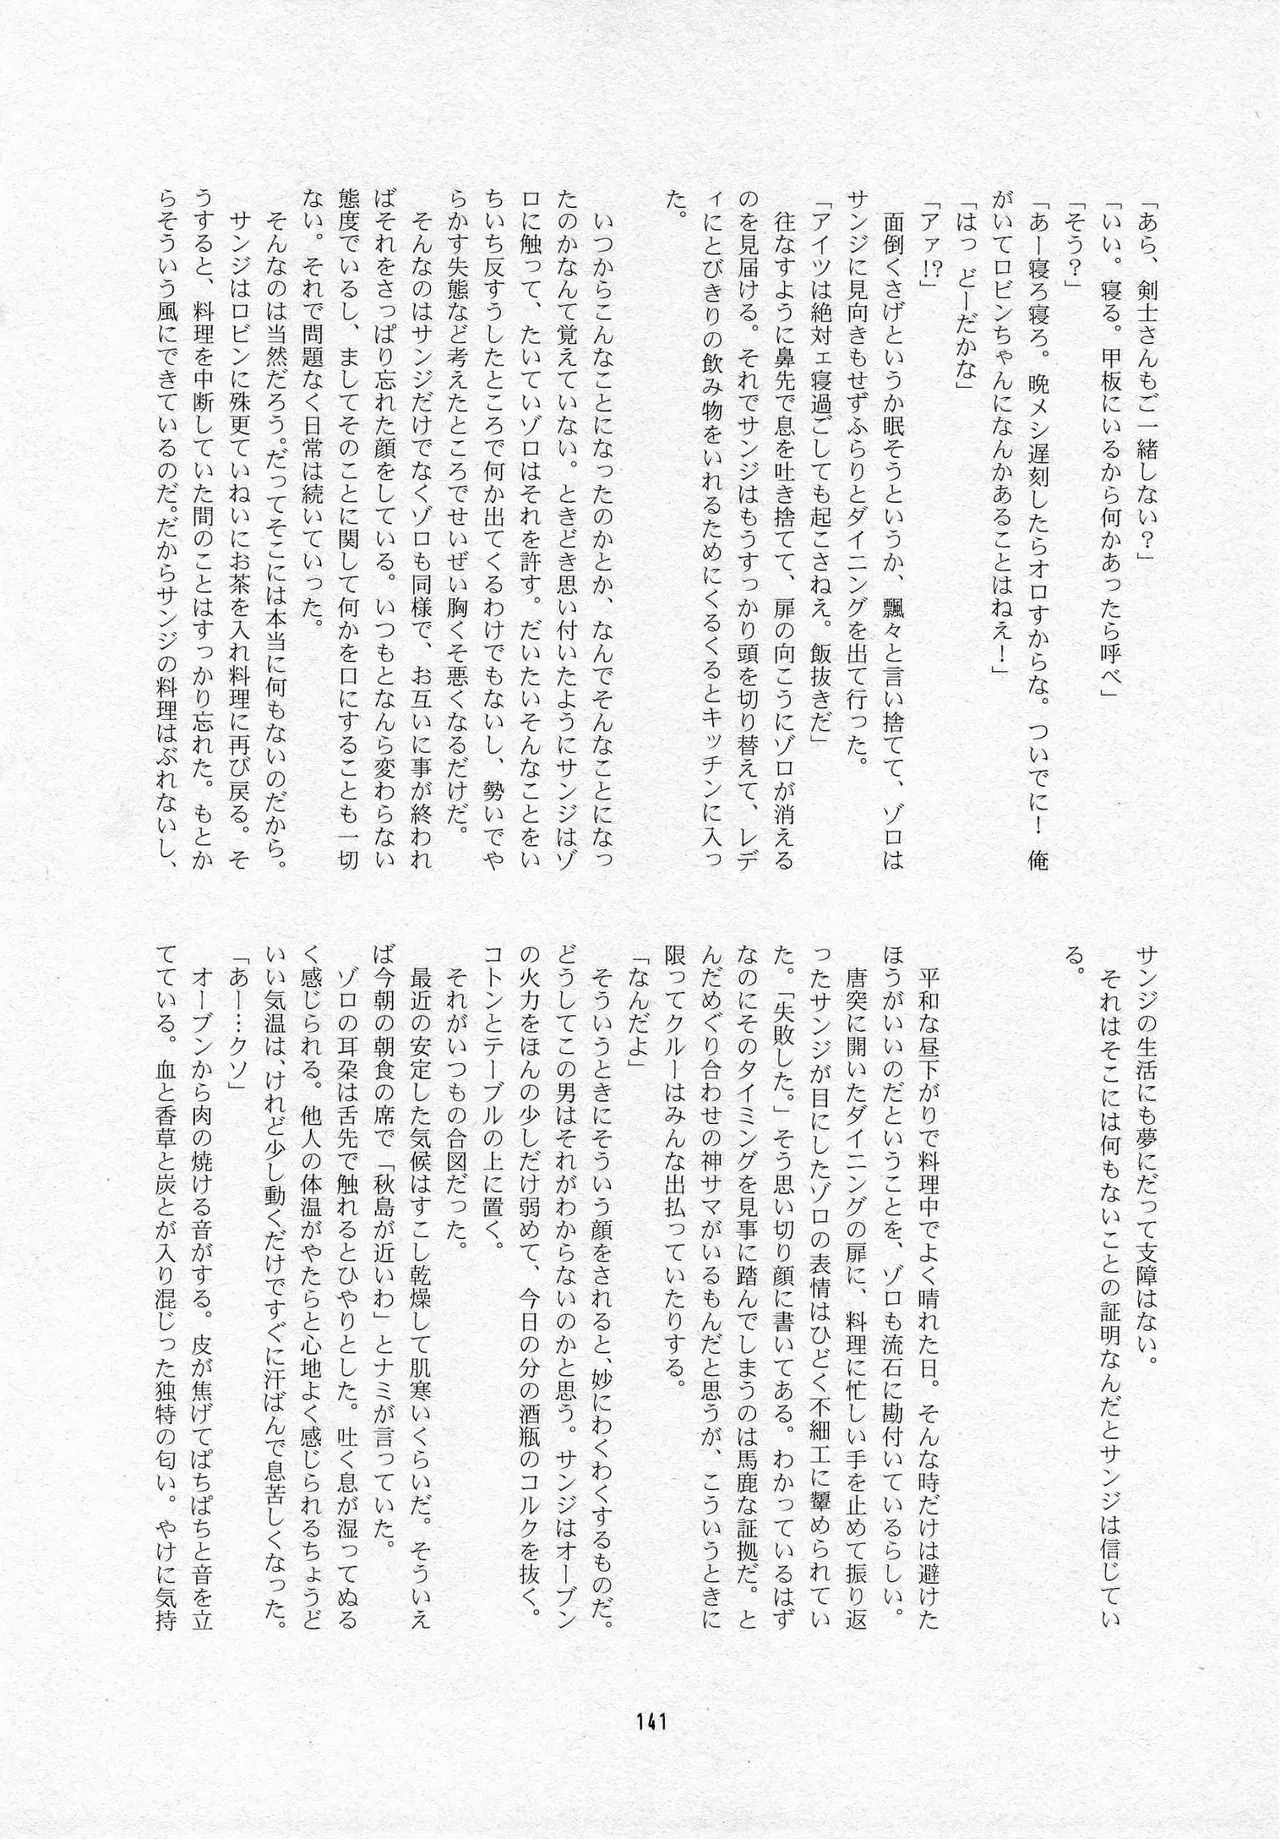 「あら、剣士さんもご一緒しない？」
「いい。寝る。甲板にいるから何かあったら呼べ」
「そう？」
「あー寝ろ寝ろ。晩メシ遅刻したらオロすからな。ついでに！　俺
がいてロビンちゃんになんかあることはねえ！」
「はっ　どーだかな」
「アァ!?」
　面倒くさげというか眠そうというか、飄々と言い捨てて、ゾロは
サンジに見向きもせずふらりとダイニングを出て行った。
「アイツは絶対ェ寝過ごしても起こさねえ。飯抜きだ」
　往なすように鼻先で息を吐き捨てて、扉の向こうにゾロが消える
のを見届ける。それでサンジはもうすっかり頭を切り替えて、レデ
ィにとびきりの飲み物をいれるためにくるくるとキッチンに入っ
た。
　いつからこんなことになったのかとか、なんでそんなことになっ
たのかなんて覚えていない。ときどき思い付いたようにサンジはゾ
ロに触って、たいていゾロはそれを許す。だいたいそんなことをい
ちいち反すうしたところで何か出てくるわけでもないし、勢いでや
らかす失態など考えたところでせいぜい胸くそ悪くなるだけだ。
　そんなのはサンジだけでなくゾロも同様で、お互いに事が終われ
ばそれをさっぱり忘れた顔をしている。いつもとなんら変わらない
態度でいるし、ましてそのことに関して何かを口にすることも一切
ない。それで問題なく日常は続いていった。
　そんなのは当然だろう。だってそこには本当に何もないのだから。
　サンジはロビンに殊更ていねいにお茶を入れ料理に再び戻る。そ
うすると、料理を中断していた間のことはすっかり忘れた。もとか
らそういう風にできているのだ。だからサンジの料理はぶれないし、
サンジの生活にも夢にだって支障はない。
　それはそこには何もないことの証明なんだとサンジは信じてい
る。
　平和な昼下がりで料理中でよく晴れた日。そんな時だけは避けた
ほうがいいのだということを、ゾロも流石に勘付いているらしい。
　唐突に開いたダイニングの扉に、料理に忙しい手を止めて振り返
ったサンジが目にしたゾロの表情はひどく不細工に顰められてい
た。「失敗した。」そう思い切り顔に書いてある。わかっているはず
なのにそのタイミングを見事に踏んでしまうのは馬鹿な証拠だ。と
んだめぐり合わせの神サマがいるもんだと思うが、こういうときに
限ってクルーはみんな出払っていたりする。
「なんだよ」
　そういうときにそういう顔をされると、妙にわくわくするものだ。
どうしてこの男はそれがわからないのかと思う。サンジはオーブン
の火力をほんの少しだけ弱めて、今日の分の酒瓶のコルクを抜く。
コトンとテーブルの上に置く。
　それがいつもの合図だった。
　最近の安定した気候はすこし乾燥して肌寒いくらいだ。そういえ
ば今朝の朝食の席で「秋島が近いわ」とナミが言っていた。
　ゾロの耳朶は舌先で触れるとひやりとした。吐く息が湿ってぬる
く感じられる。他人の体温がやたらと心地よく感じられるちょうど
いい気温は、けれど少し動くだけですぐに汗ばんで息苦しくなった。
「あー…クソ」
　オーブンから肉の焼ける音がする。皮が焦げてぱちぱちと音を立
てている。血と香草と炭とが入り混じった独特の匂い。やけに気持
141